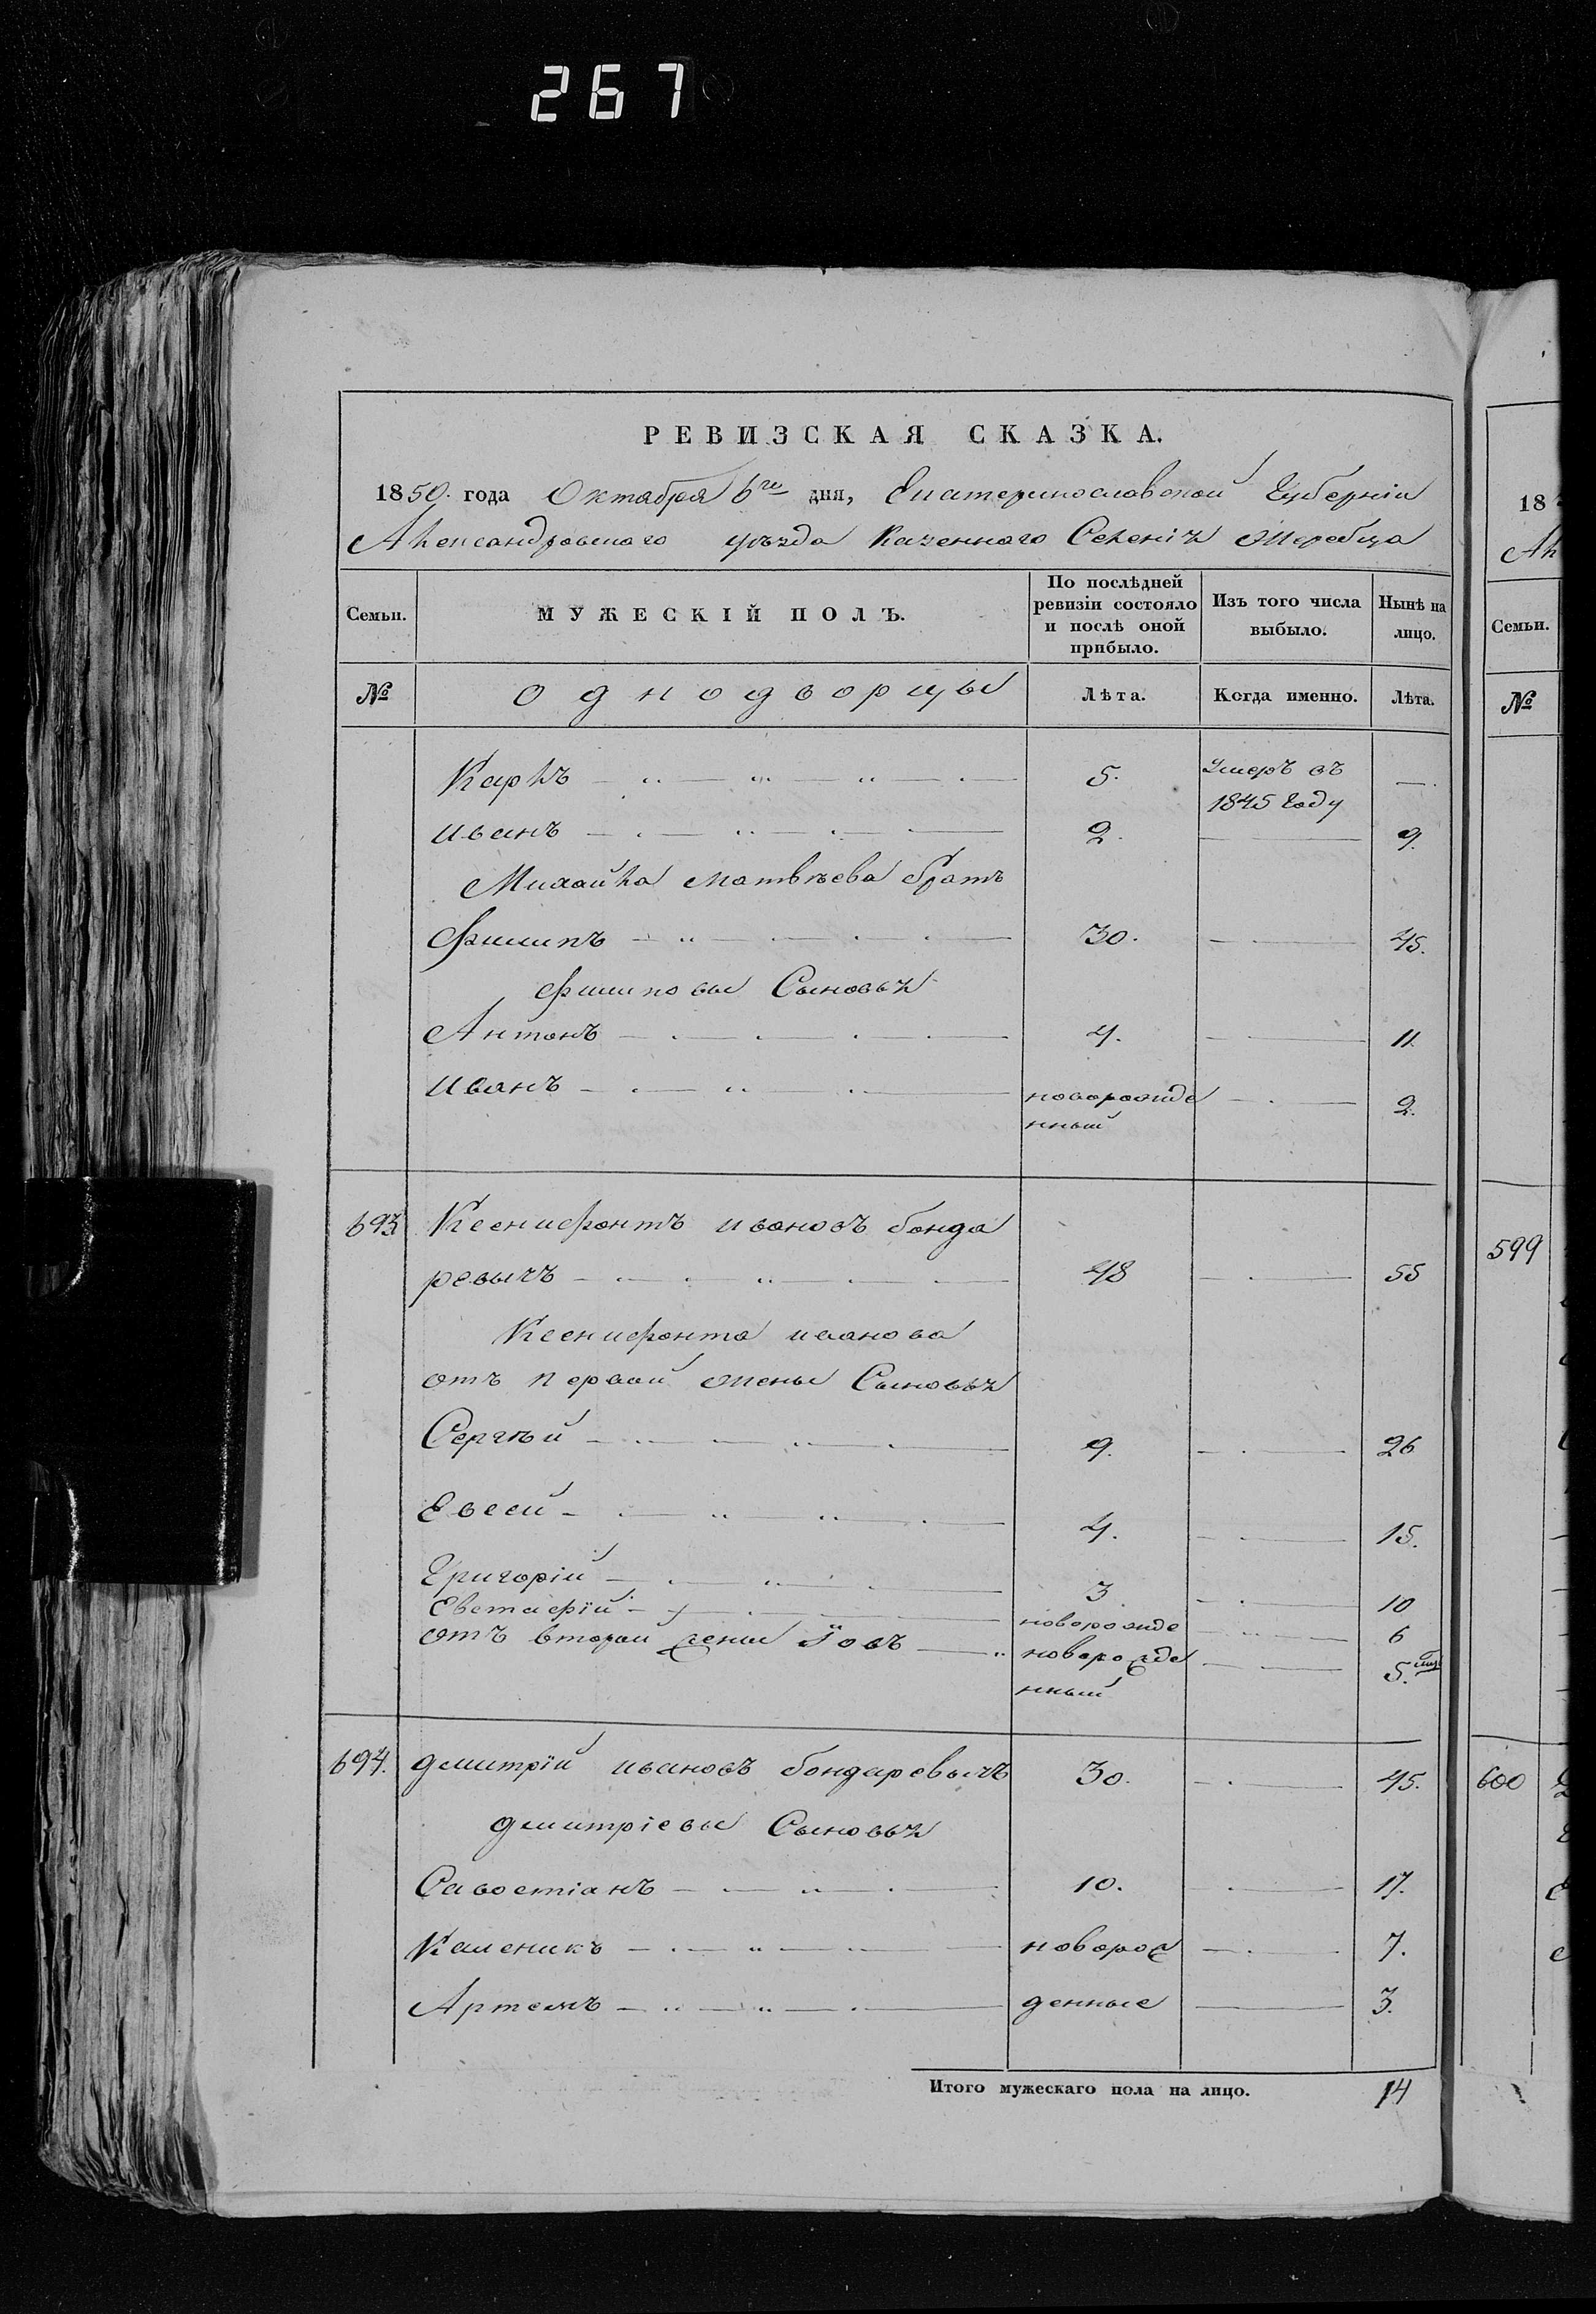 267
РЕВИЗСКАЯ СКАЗКА.
1850. года Октября 6го дня, Екатеринославской Губерніи
Александровского уѣзда Казенного Селенія Жеребца
Семьи.
МУЖЕСКІЙ ПОЛЪ.
По послѣдней ревизіи состояло и послѣ оной прибыло.
Изъ того числа выбыло.
Нынѣ на лицо.
№ однодворцы Лѣта. Когда именно. Лѣта.
Карпъ 5. Умеръ въ 1845 году —
иванъ 2. — 9.
Михайла матвѣева братъ
Филипъ 30. — 45.
Филиповы Сыновья
Антонъ 4. — 11.
иванъ новорожде — 2.
нный
693 Ксенифонтъ ивановъ бонда
ревычъ 48 — 55
Ксенифонта иванова
отъ первой жены Сыновья
Сергѣй 9. — 26
Евсей 4. — 15.
Григорій 3 — 10
Евстафїй новорожде — 6
отъ второй жены Їовъ новорожде — 5. мѣс
нный
694. дмитрїй ивановъ бондаревычъ 30. — 45.
дмитріевы Сыновья
Савостіанъ 10. — 17.
Каленикъ новорож — 7.
Артемъ денные — 3.
Итого мужескаго пола на лицо. 14
18
Ал
Семьи.
№
599
600